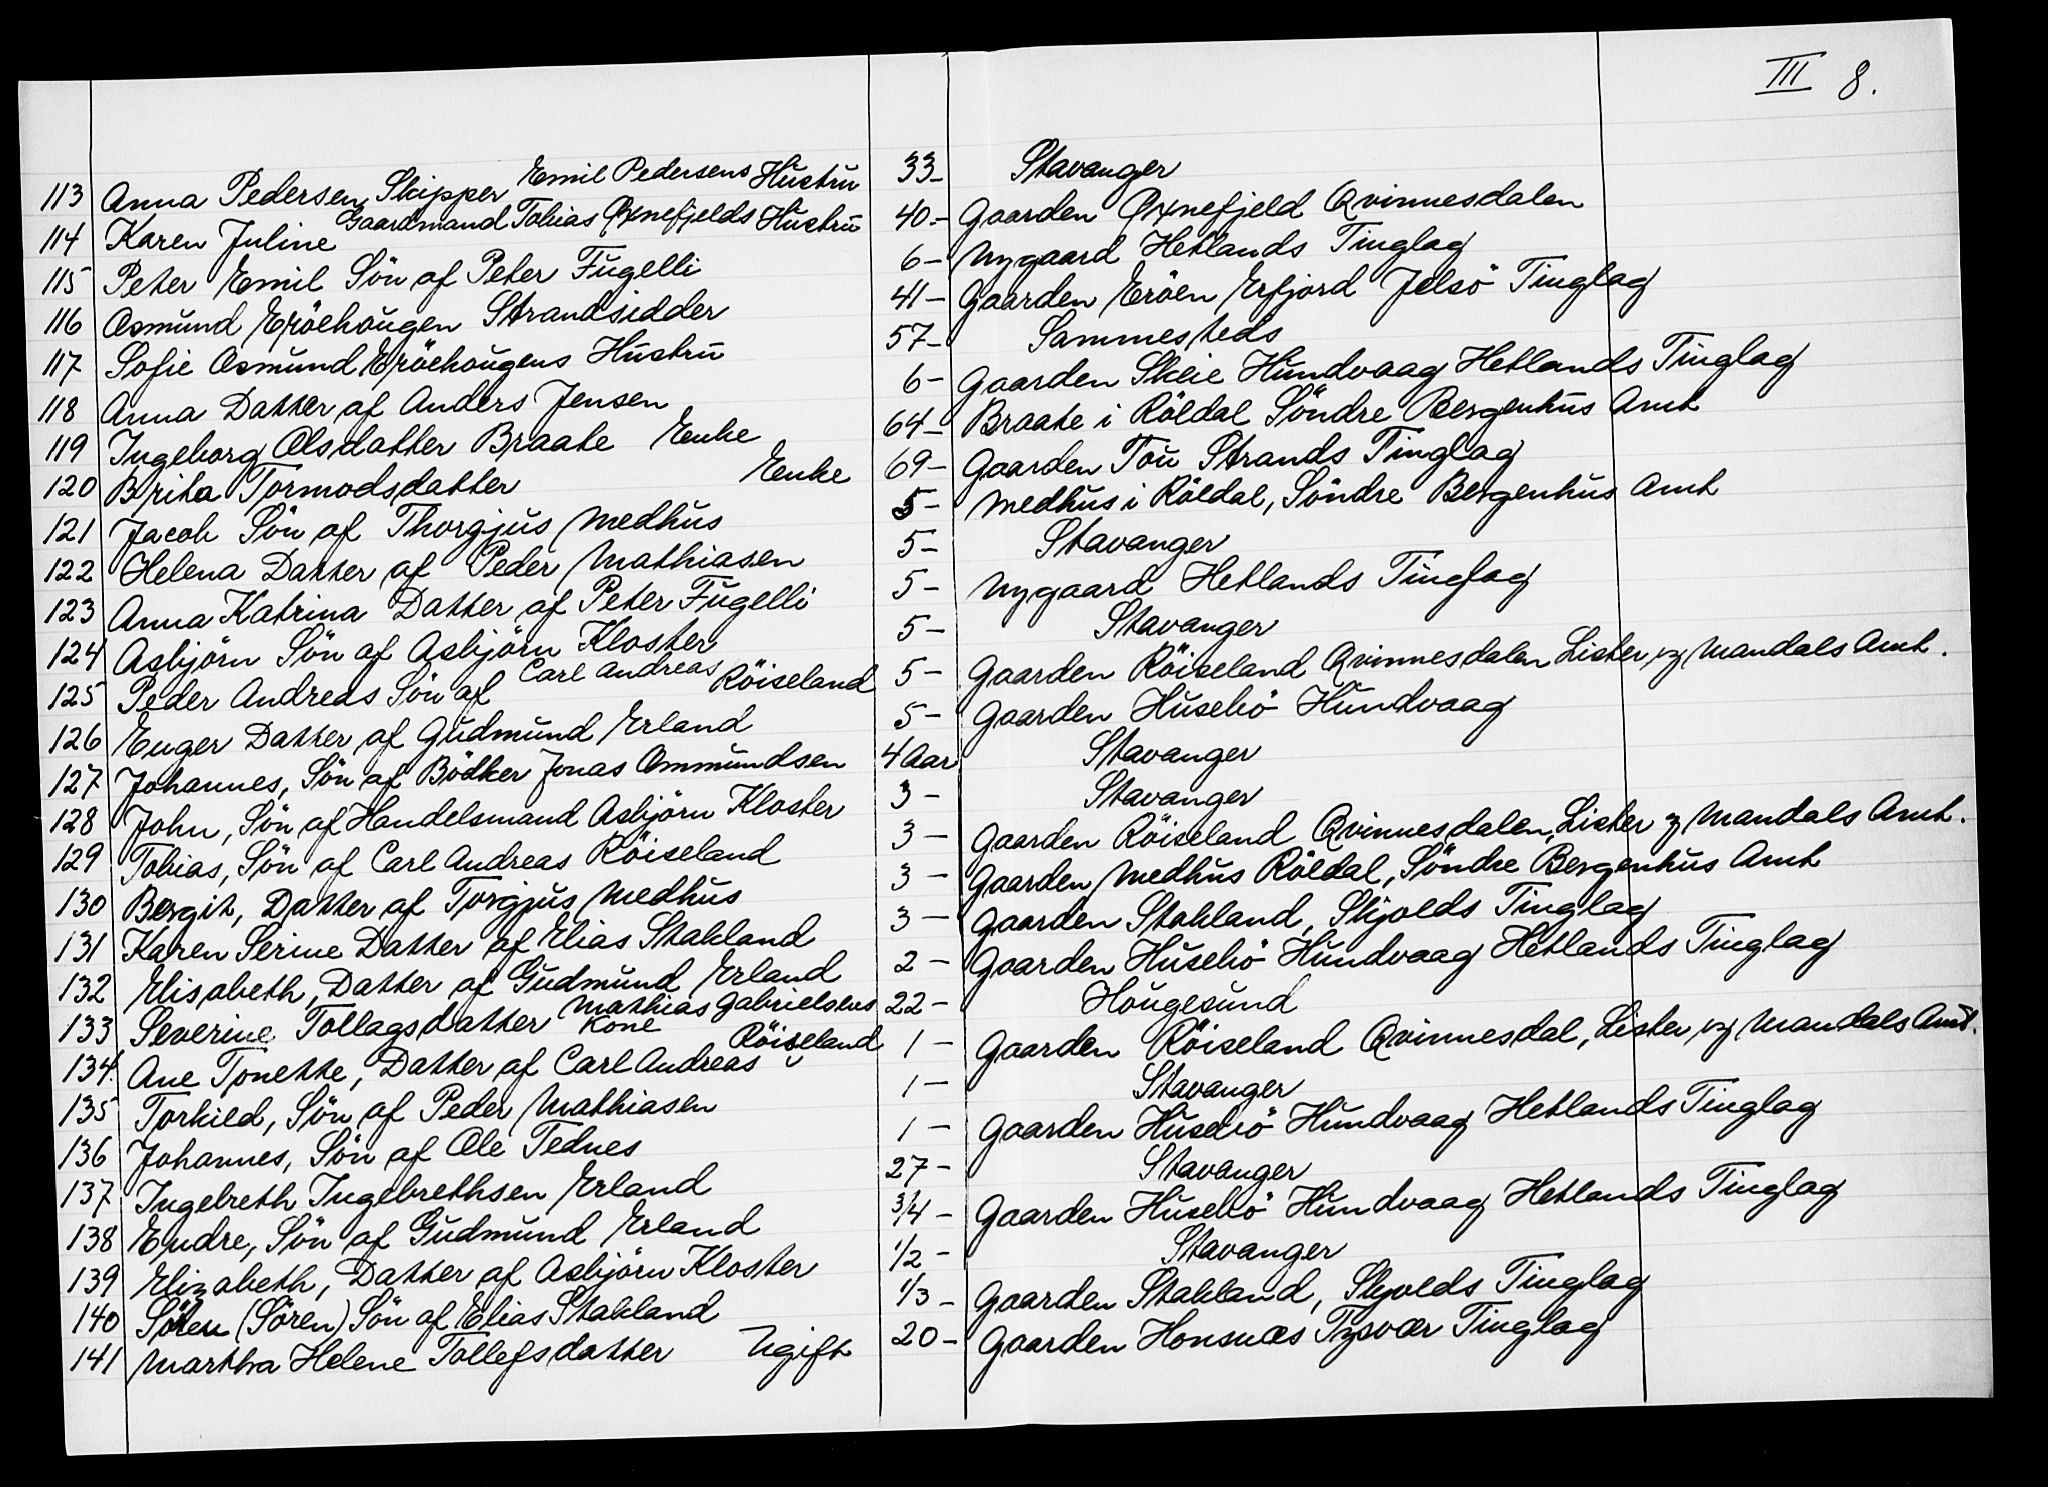 III 8.
113 Anna Pedersen, Skipper Emil Pedersens Hustru 33- Stavanger
114 Karen Juline Gaardmand Tobias Øxnefjelds Hustru 40- Gaarden Øxnefjeld Qvinnesdalen
115 Peter Emil Sön af Peter Fugelli 6- Nygaard Hetlands Tinglag
116 Osmund Eröehougen Strandsidder 41- Gaarden Eröen, Erfjord Jelsö Tinglag
117 Sofie Osmund Eröehougens Hustru 57- Sammesteds
118 Anna Datter af Anders Jensen 6- Gaarden Skeie Hundvaag Hetlands Tinglag
119 Ingeborg Olsdatter Braate Enke 64- Braate i Röldal Söndre Bergenhus Amt
120 Brita Tormodsdatter Enke 69- Gaarden Tou Strands Tinglag
121 Jacob Sön af Thorgjus Medhus 5- Medhus i Röldal, Söndre Bergenhus Amt
122 Helena Datter af Peder Mathiasen 5- Stavanger
123 Anna Katrina Datter af Peter Fugelli 5- Nygaard Hetlands Tinglag
124 Asbjörn Sön af Asbjörn Kloster 5- Stavanger
125 Peder Andreas Sön af Carl Andreas Röiseland 5- Gaarden Röiseland Qvinnesdalen Lister og Mandals Amt.
126 Enger Datter af Gudmund Erland 5- Gaarden Husebö Hundvaag
127 Johannes, Sön af Bödker Jonas Ommundsen 4 Aar Stavanger
128 John, Sön af Handelsmand Asbjörn Kloster 3- Stavanger
129 Tobias, Sön af Carl Andreas Röiseland 3- Gaarden Röiseland Qvinnesdalen, Lister og Mandals Amt.
130 Bergit, Datter af Torgjus Medhus 3- Gaarden Medhus Röldal, Söndre Bergenhus Amt
131 Karen Serine Datter af Elias Stakland 3- Gaarden Stakland, Skjolds Tinglag
132 Elisabeth, Datter af Gudmund Erland 2- Gaarden Husebö Hundvaag Hetlands Tinglag
133 Severine Tollagsdatter Mathias Gabrielsens Kone 22- Hougesund
134. Ane Tonette, Datter af Carl Andreas Röiseland 1- Gaarden Röiseland Qvinnesdal, Lister og Mandals Amt.
135 Torkild, Sön af Peder Mathiasen 1- Stavanger
136 Johannes, Sön af Ole Tednes 1- Gaarden Husebö Hundvaag Hetlands Tinglag
137 Ingebreth Ingebrethsen Erland 27- Stavanger
138 Endre, Sön af Gudmund Erland 3/4- Gaarden Husebö Hundvaag Hetlands Tinglag
139 Elizabeth, Datter af Asbjörn Kloster 1/2- Stavanger
140 (Sören) Sön af Elias Stakland 1/3- Gaarden Stakland, Skjolds Tinglag
141 Martha Helene Tollefsdatter Ugift 20- Gaarden Honsnæs Tysvær Tinglag